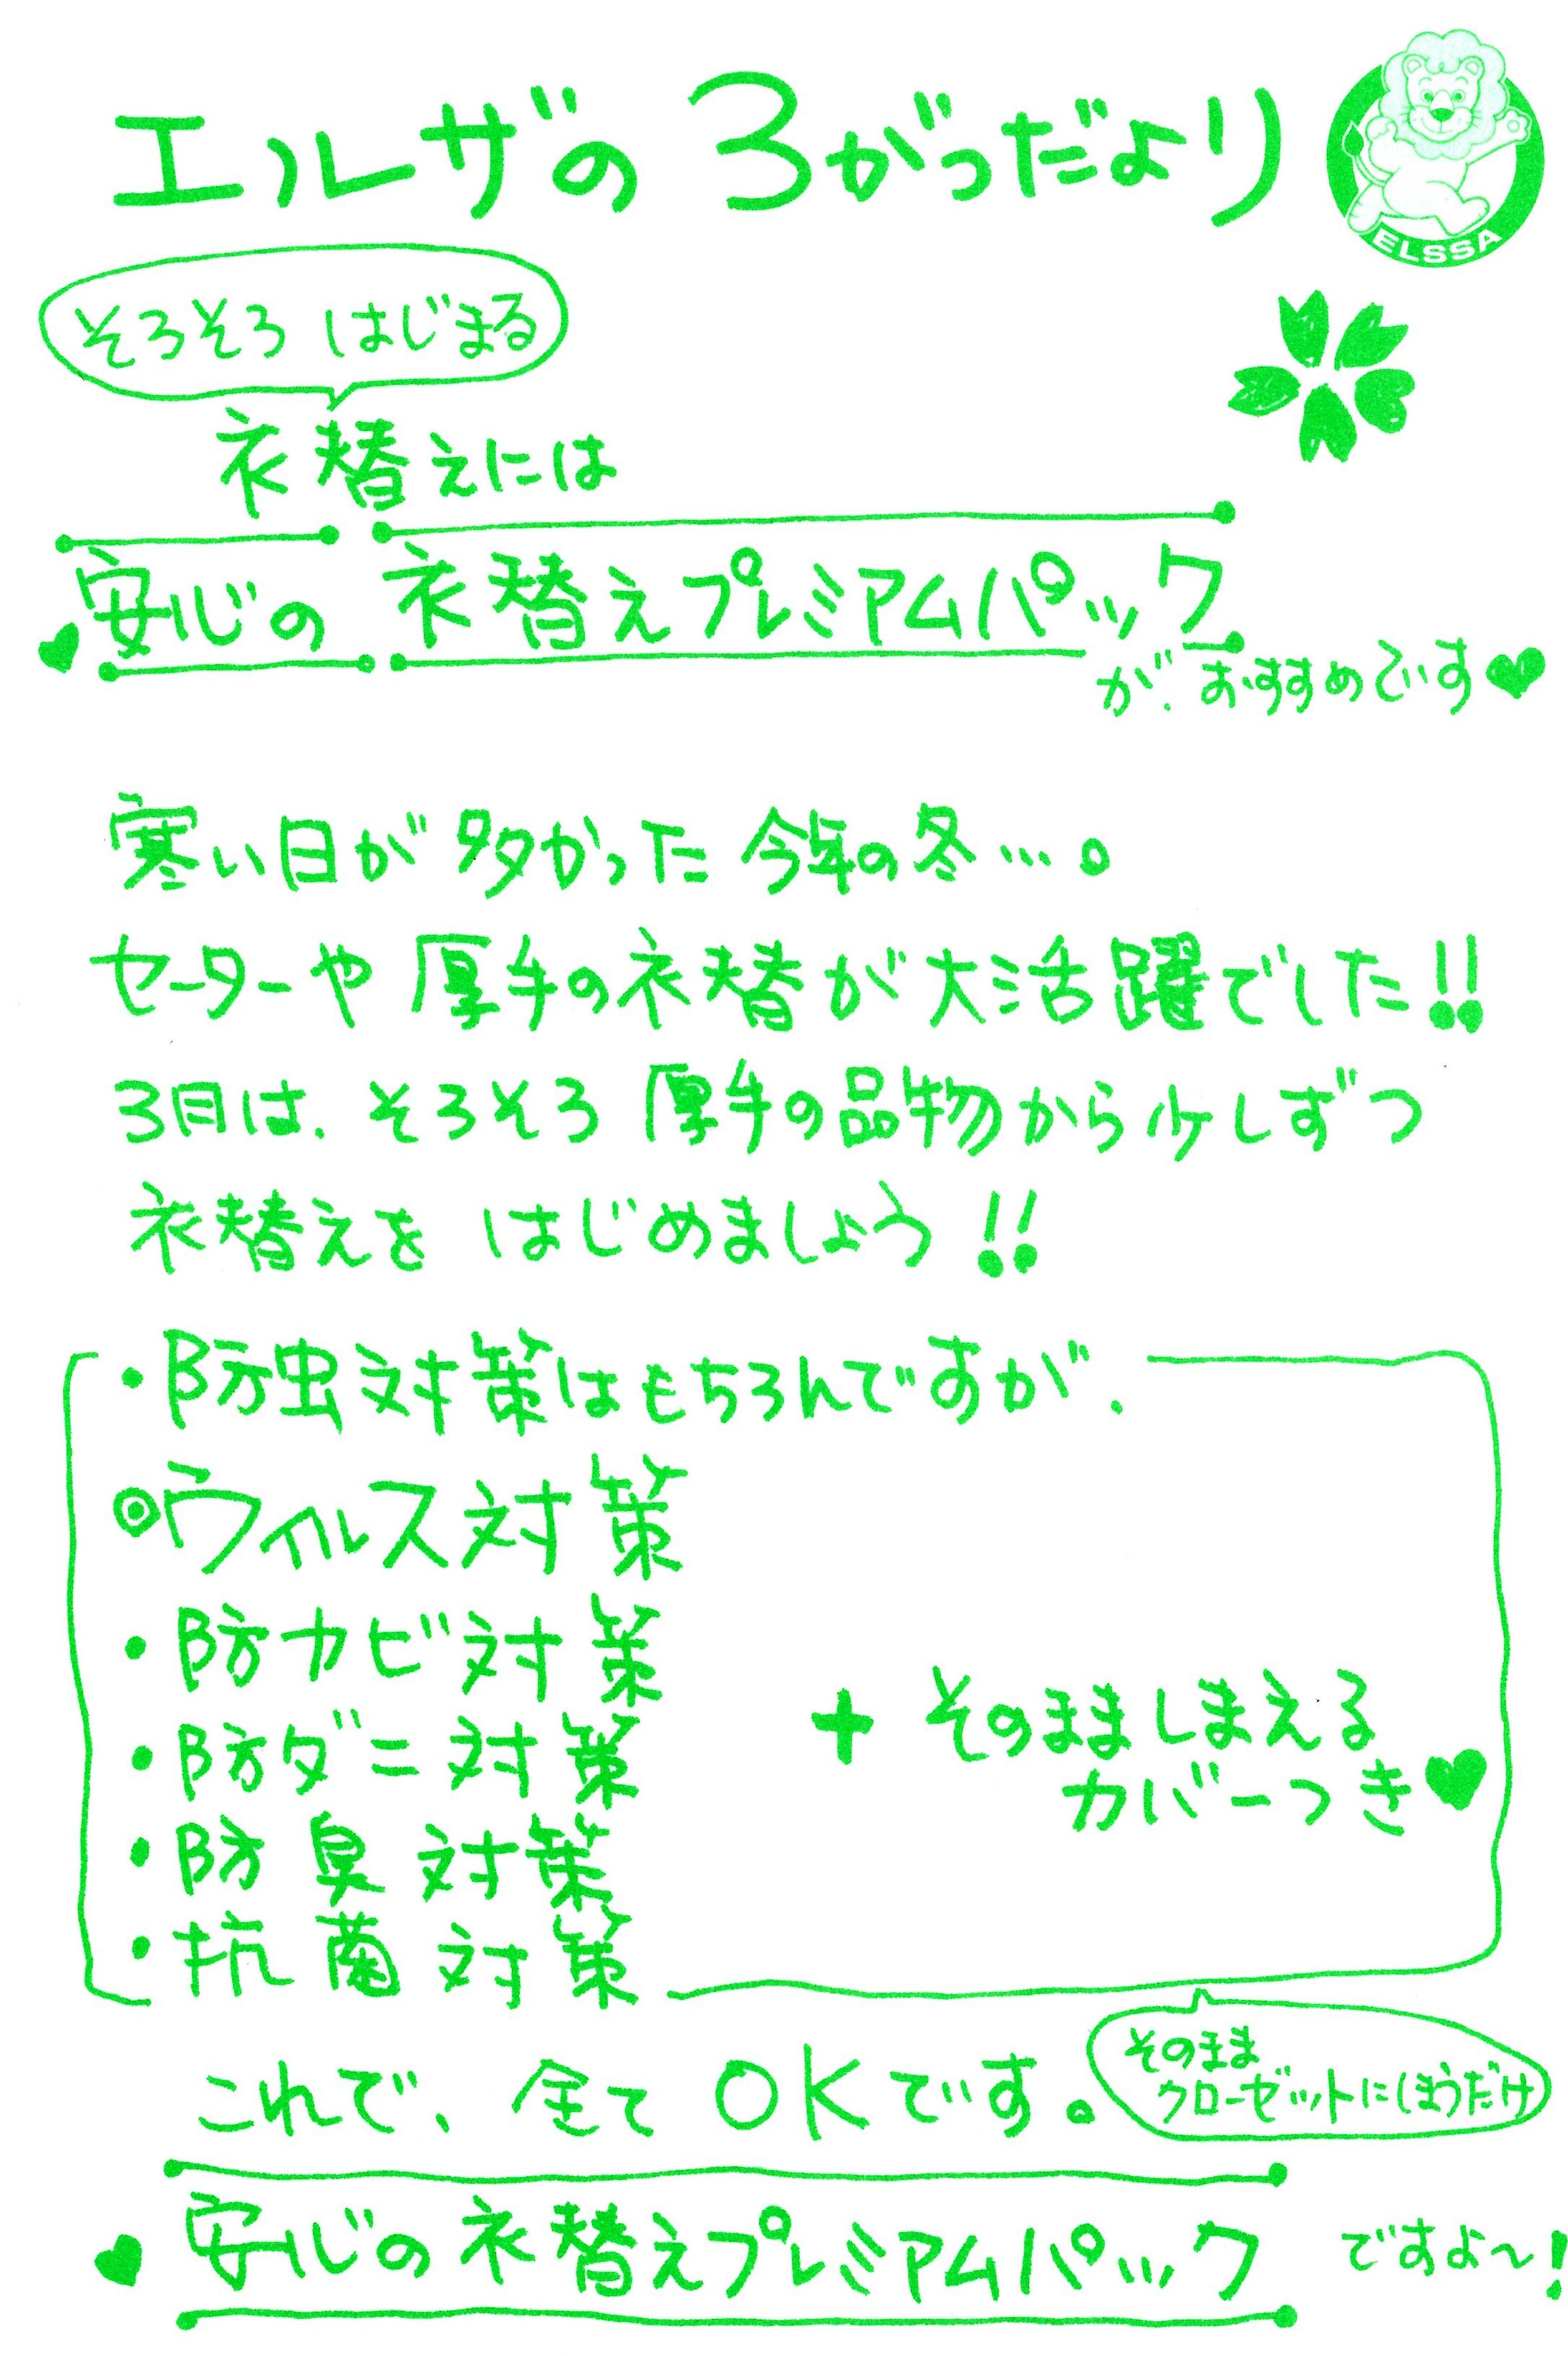 エルザの 3がつだより
ELSSA
そろそろ はじまる
衣替えには
安心の 衣替えプレミアムパック
が、おすすめです
寒い日が多かった今年の冬…。
セーターや厚手の衣替が大活躍でした!!
3月は、そろそろ厚手の品物から少しずつ
衣替えを はじめましょう!!
・防虫対策はもちろんですが、
◎ウィルス対策
・防カビ対策
・防ダニ対策
・防臭対策
・抗菌対策
+ そのまましまえる
カバーつき
これで、全て OKです。
そのまま
クローゼットにしまうだけ
安心の衣替えプレミアムパック ですよ〜!